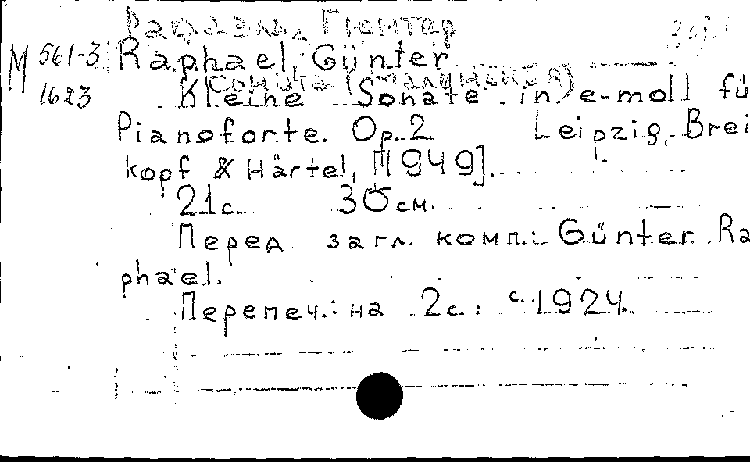 Рафаэль, Гюнтер
М 561-3 Raphael, Günter
1623
Соната (маленькая)
Kleine Sonate in e-moll fü
Pianoforte. Op. 2 Leipzig, Brei
kopf & Härtel, [1949].
21с. 30см.
Перед загл. комп.: Günter Ra
phael.
Перепеч.: на 2с.: с1924.